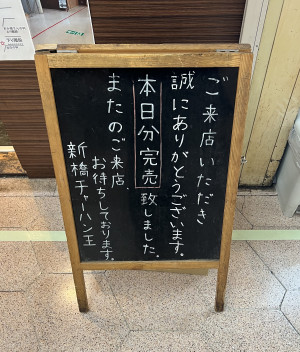 ご来店いただき
誠にありがとうございます。
本日分完売致しました。
またのご来店、
お待ちしております。
新橋チャーハン王